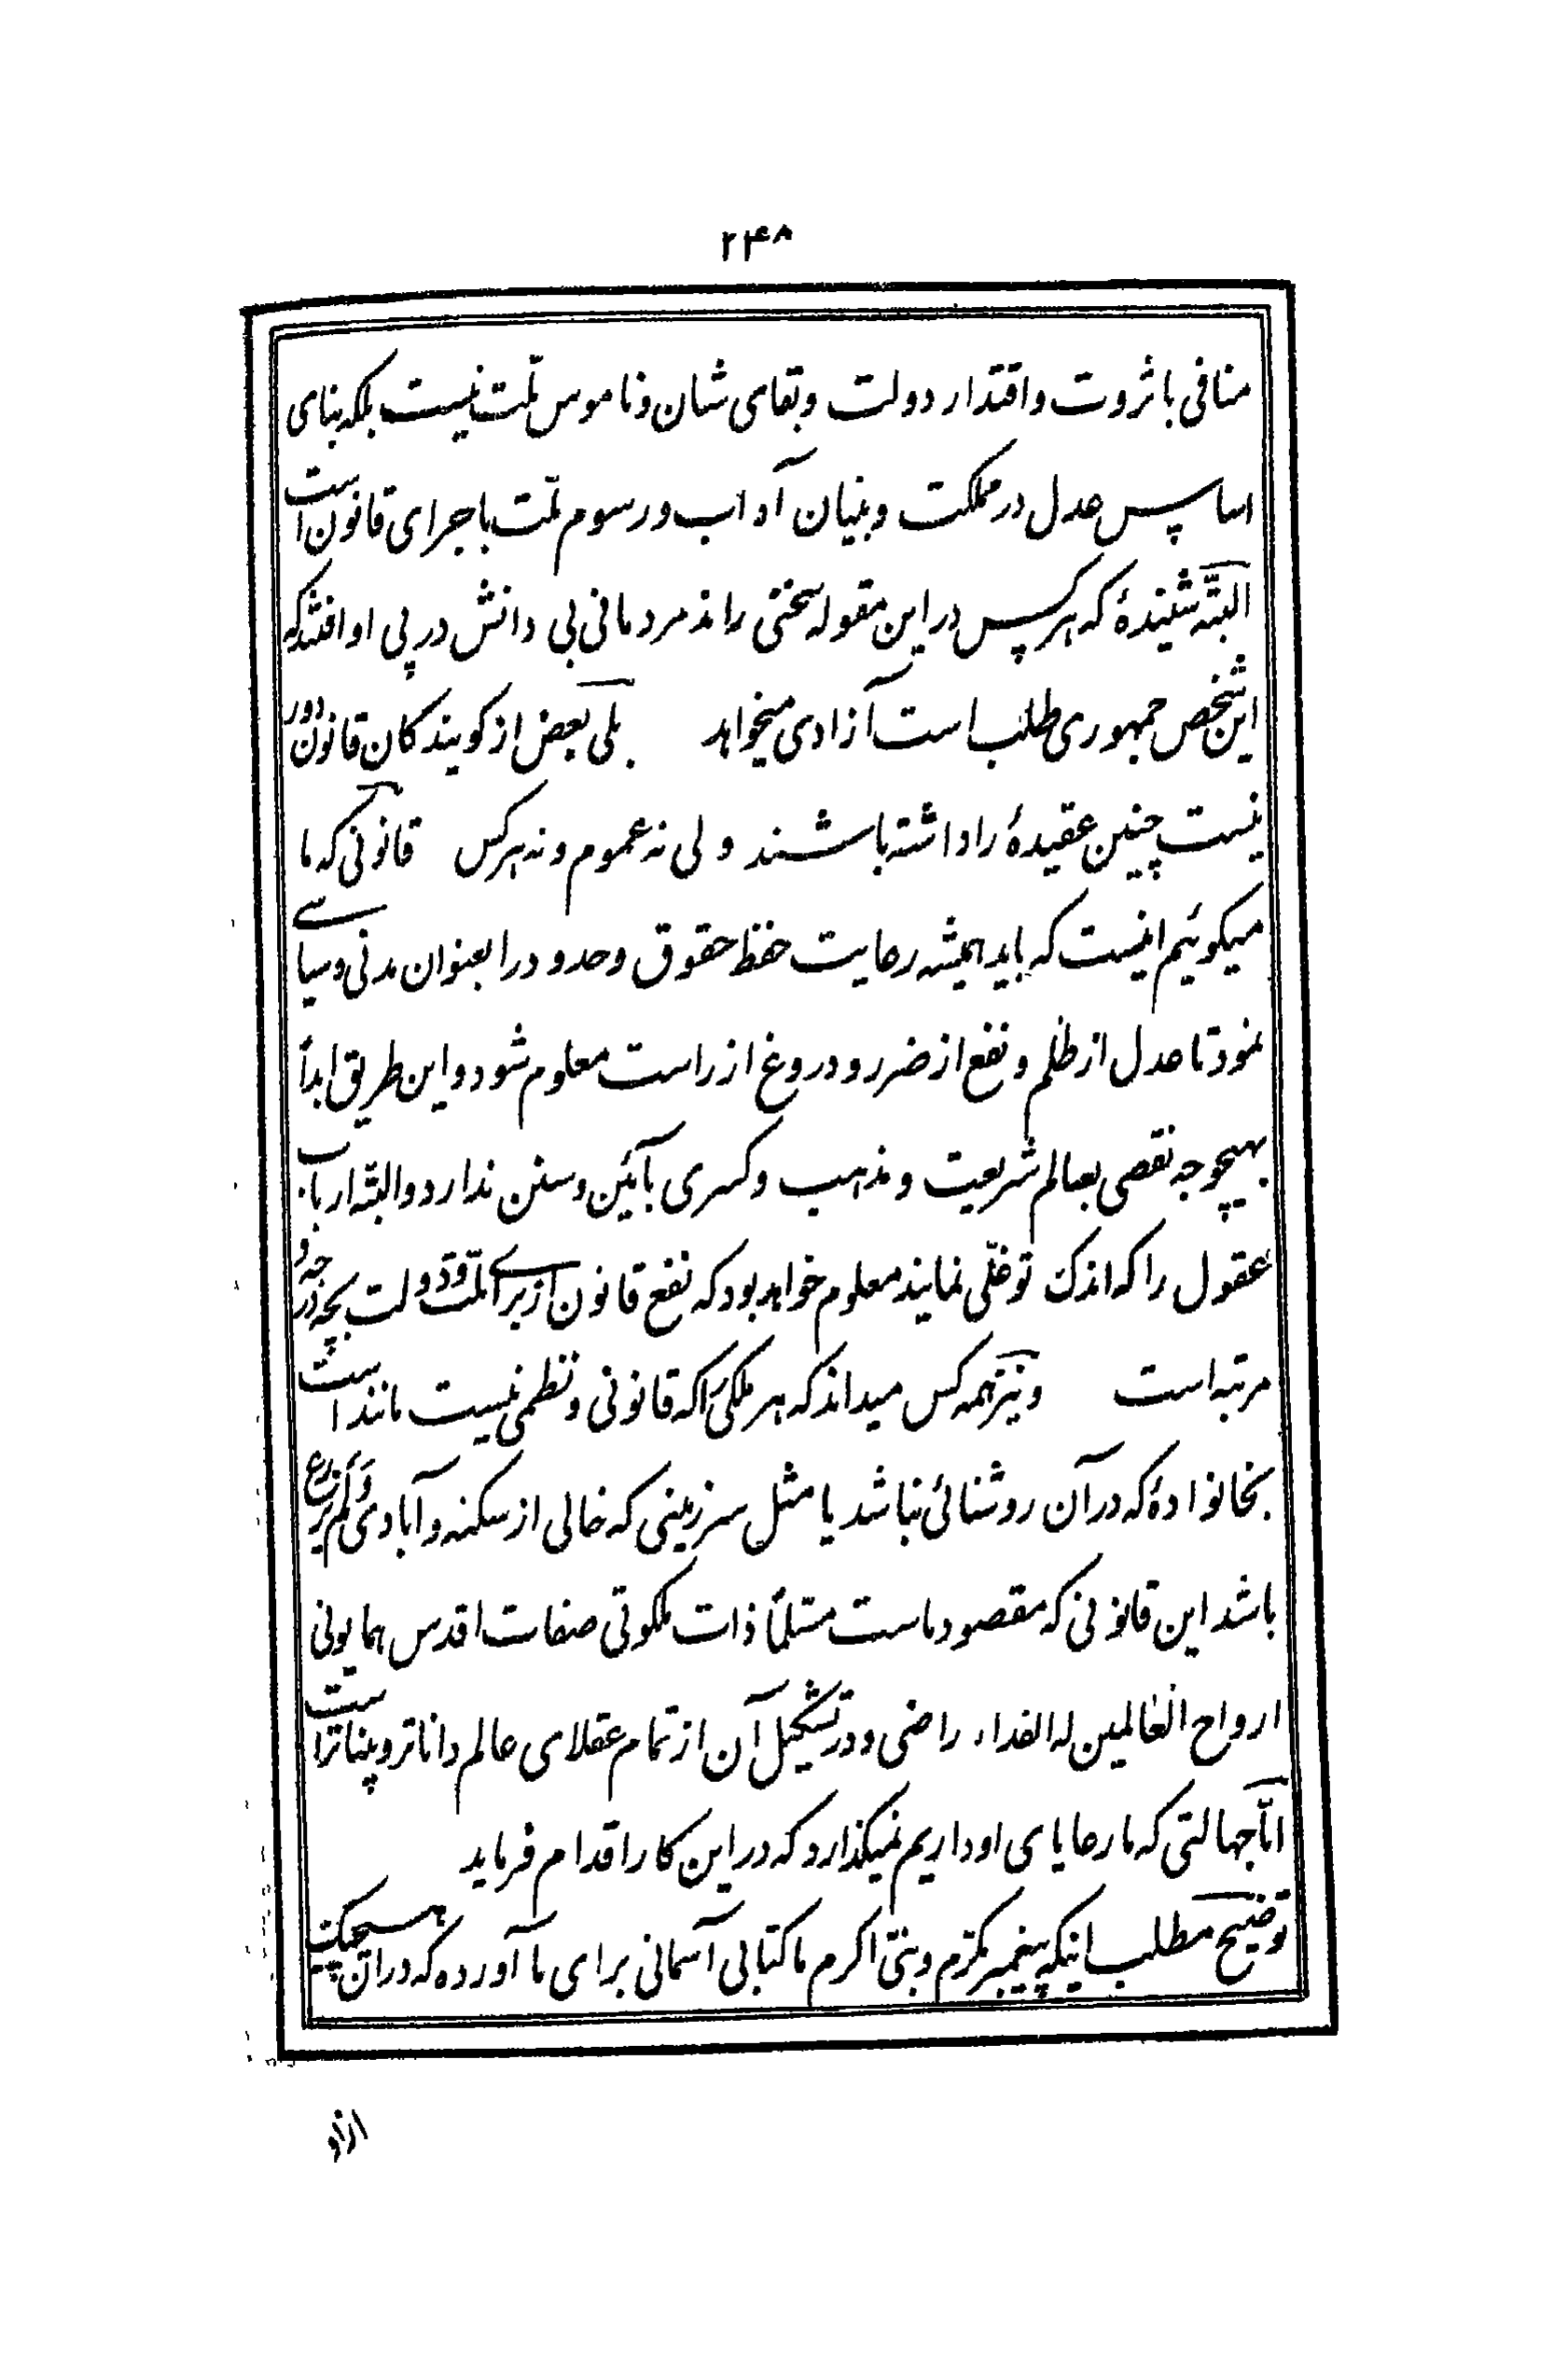 ۲۴۸
منافی با ثروت و اقتدار دولت و بقای شان و ناموس ملّت نیست بلکه بنای
اساس عدل در مملکت و بنیان آداب و رسوم ملّت باجرای قانون است
البتّه شنیدهٔ که هر کس در این مقوله سخنی راند مردمانی بی دانش در پی او افتند که
این شخص جمهوری طلب است آزادی میخواهد بلی بعض از کویندکان قانون دور
نیست چنین عقیدهٔ را داشته باشند ولی نه عموم و نه هر کس قانونی که ما
میکوئیم اینست که باید همیشه رعایت حفظ حقوق و حدود را بعنوان مدنی و سیاسی
نمود تا عدل از ظلم و نفع از ضرر و دروغ از راست معلوم شود و این طریق ابداً
بهیچوجه نقصی بعالم شریعت و مذهب و کسری بآئین و سنن ندارد و البتّه ارباب
عقول را که اندک توغّلی نمایند معلوم خواهد بود که نفع قانون از برای ملّت و دولت بچه درجه و
مرتبه است و نیز همه کس میداند که هر ملکی را که قانونی و نظمی نیست مانند است
بخانوادهٔ که در آن روشنائی نباشد یا مثل سرزمینی که خالی از سکنه و آبادی و لم یزرع
باشد این قانونی که مقصود ماست مسلّماً ذات ملکوتی صفات اقدس همایونی
ارواح العالمین له الفداء راضی و در تشکیل آن از تمام عقلای عالم داناتر و بیناتر است
امّا جهالتی که ما رعایای او داریم نمیکذارد که در این کار اقدام فرماید
توضیح مطلب اینکه پیغمبر مکرّم و نبیّ اکرم ما کتابی آسمانی برای ما آورده که در آن هیچیک
از او